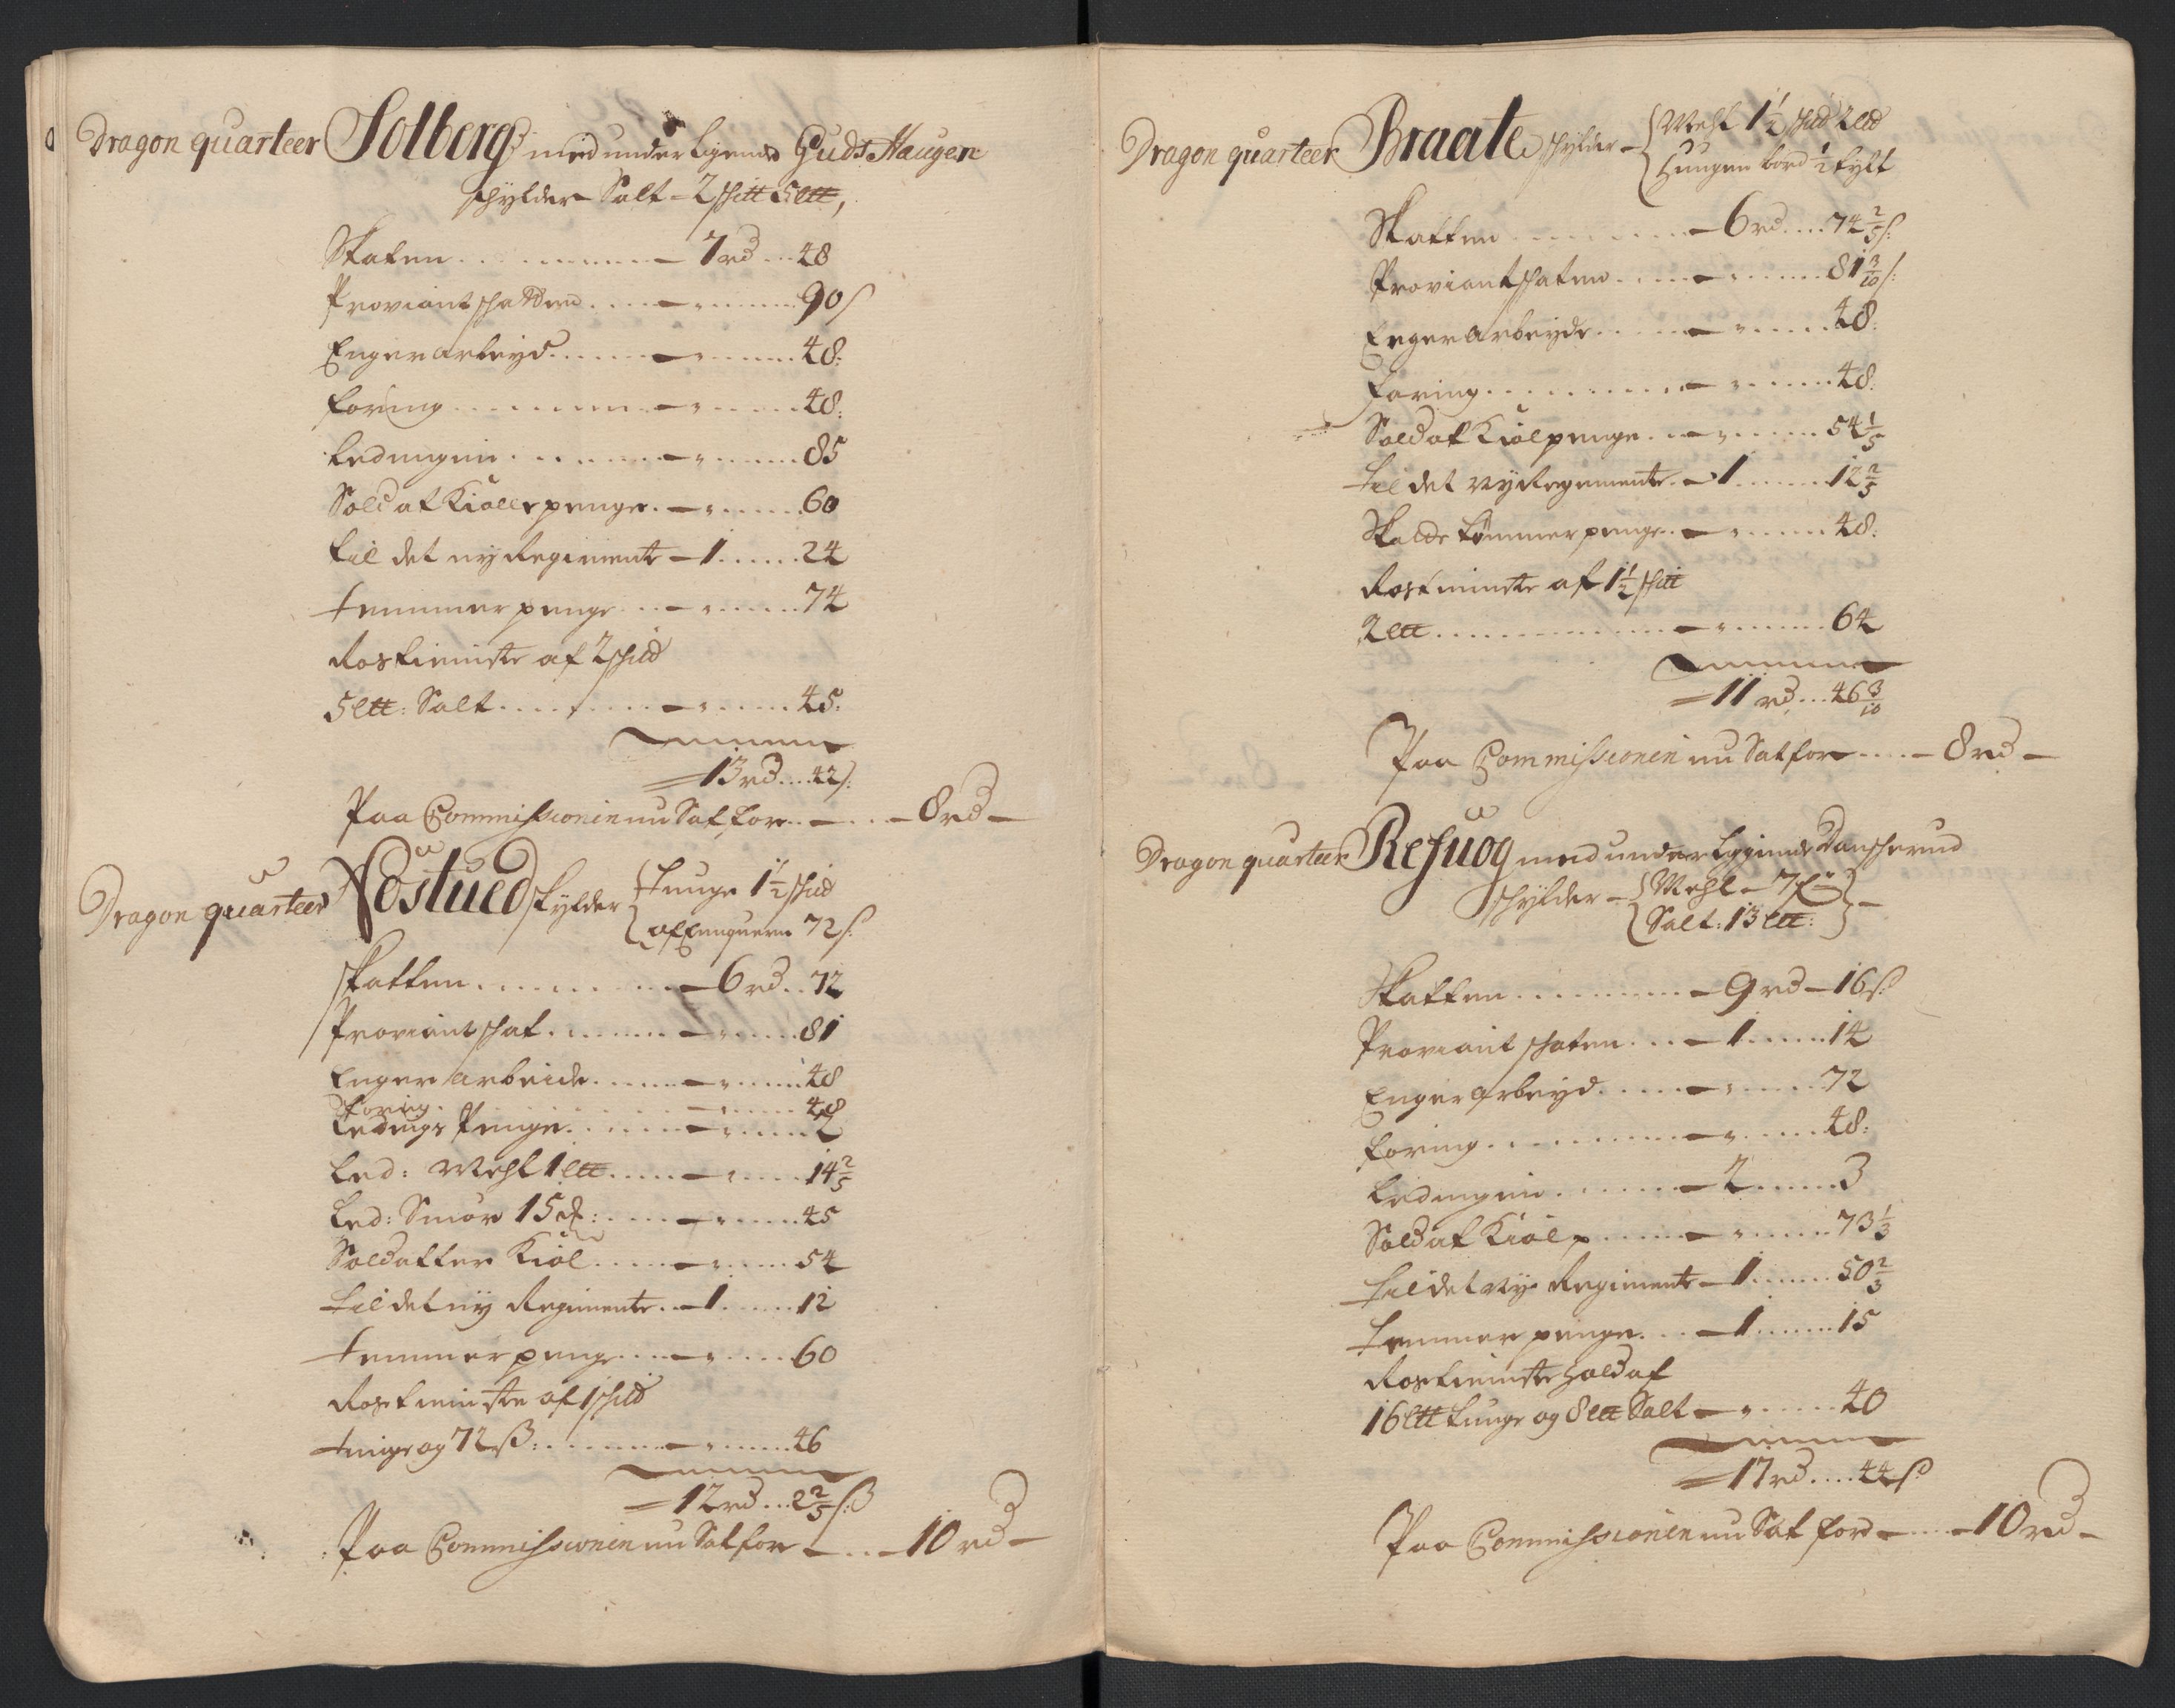 Dragon quarteer Solberg med underligende Guds Haugen
schylder Salt - 2 schitt 5 ltt,
Skaten - 7 rd 48
Proviantschatten - " 90 s
Enger arbeyd - " 48:
foring - " 48:
Ledingen - " 85
Soldat Kiolle penge - " 60
til det ny Regimente - 1 24
temmer penge - " 74
Rostieniste af 2 schid
5 ltt: Salt - " 45:
= 13 rd 42 s:
Paa Commissionen nu Sat for - 8 rd -
Dragon quarteer Nöstued skylder { tunge 1½ schid
72 s:
skatten - 6 rd 72
Proviant schat - " 81
Enger arbeide - " 48
foring - " 48
Ledings Penge - " 2
Led: Mehl 1 ltt - " 14 2/5
Led: Smör 15 - " 45
Soldatter Kiol - " 54
til det ny Regimente - 1 12
temmer penge - " 60
Rostieniste af 1 schid
tunge og 72 ß: - " 46
= 12 rd 2 2/5 ß
Paa Commissionen nu Sat for - 10 rd -
Dragon quarteer Braate schylder - { Mehl 1½ schid 2 ltd
Hungen bord ½ tylt
Skatten - 6 rd 74 2/5 s:
Proviantschaten - " 81 3/10 s:
Enger arbeyde - " 48:
foring - " 48:
Soldat Kiolpenge - " 54 1/5
til det ny Regimente - 1 12 2/5
Skade tømmer penge - " 48:
Rostieniste af 1½ schitt
2 ltt - " 64
= 11 rd 46 3/10
Paa Commissionen nu Sat for - 8 rd -
Dragon quarteer Refuog med underliggende Danscherud
schylder - { Mehl - 7
Salt: 13 ltt: } -
Skatten - 9 rd - 16 s:
Proviant schaten - 1 14
Enger arbeyd - " 72
foring - " 48:
Ledingen - 2 3
Soldat Kiol p - " 73 1/3
til det Ny Regimente - 1 50 2/3
temmer penge - 1 15
Rostieniste hold af
16 ltt tunge og 8 ltt Salt - " 40
= 17 rd 44 s
Paa Commissionen nu Sat for - 10 rd -